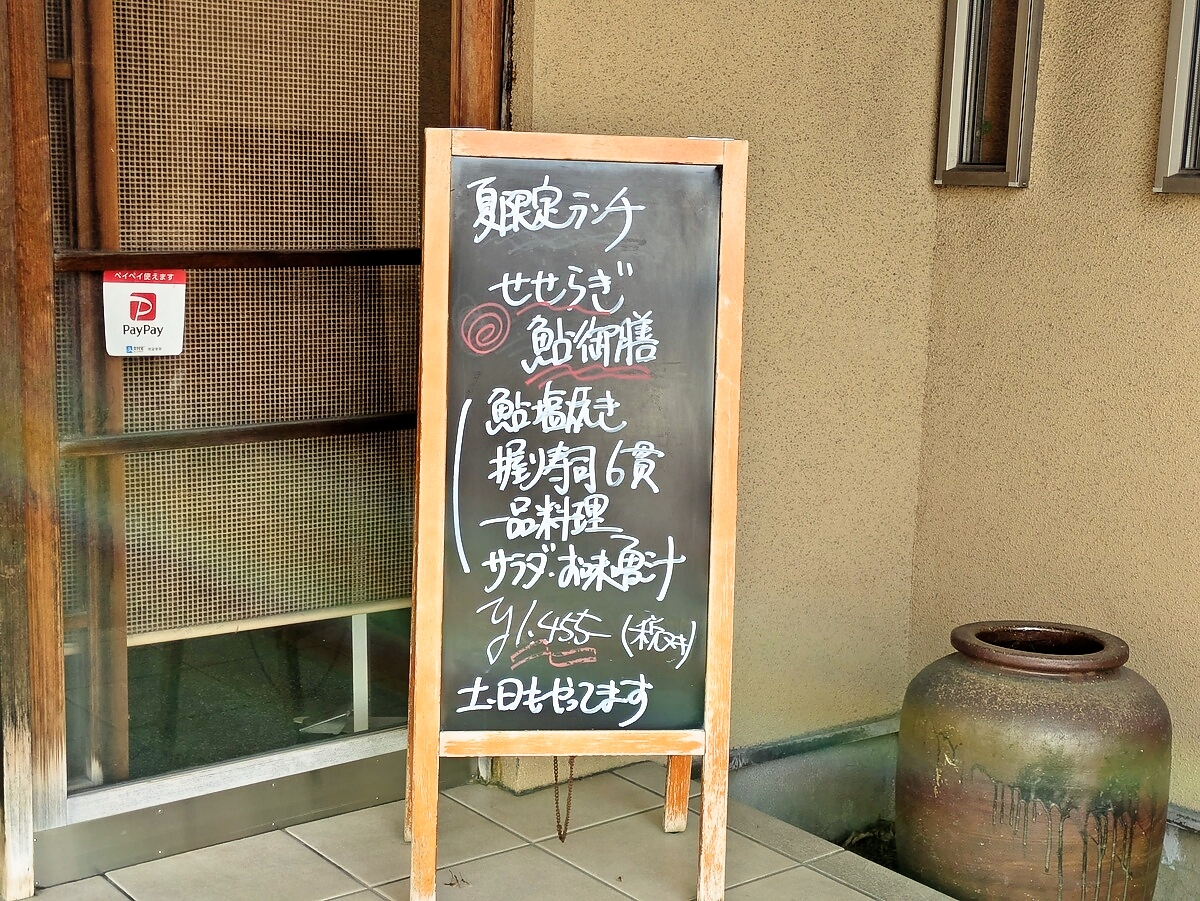 夏限定ランチ
せせらぎ
鮎御膳
鮎塩焼き
握り寿司6貫
一品料理
サラダ・お味噌汁
¥1.455 (税ヌキ)
土・日もやってます
ペイペイ使えます
PayPay